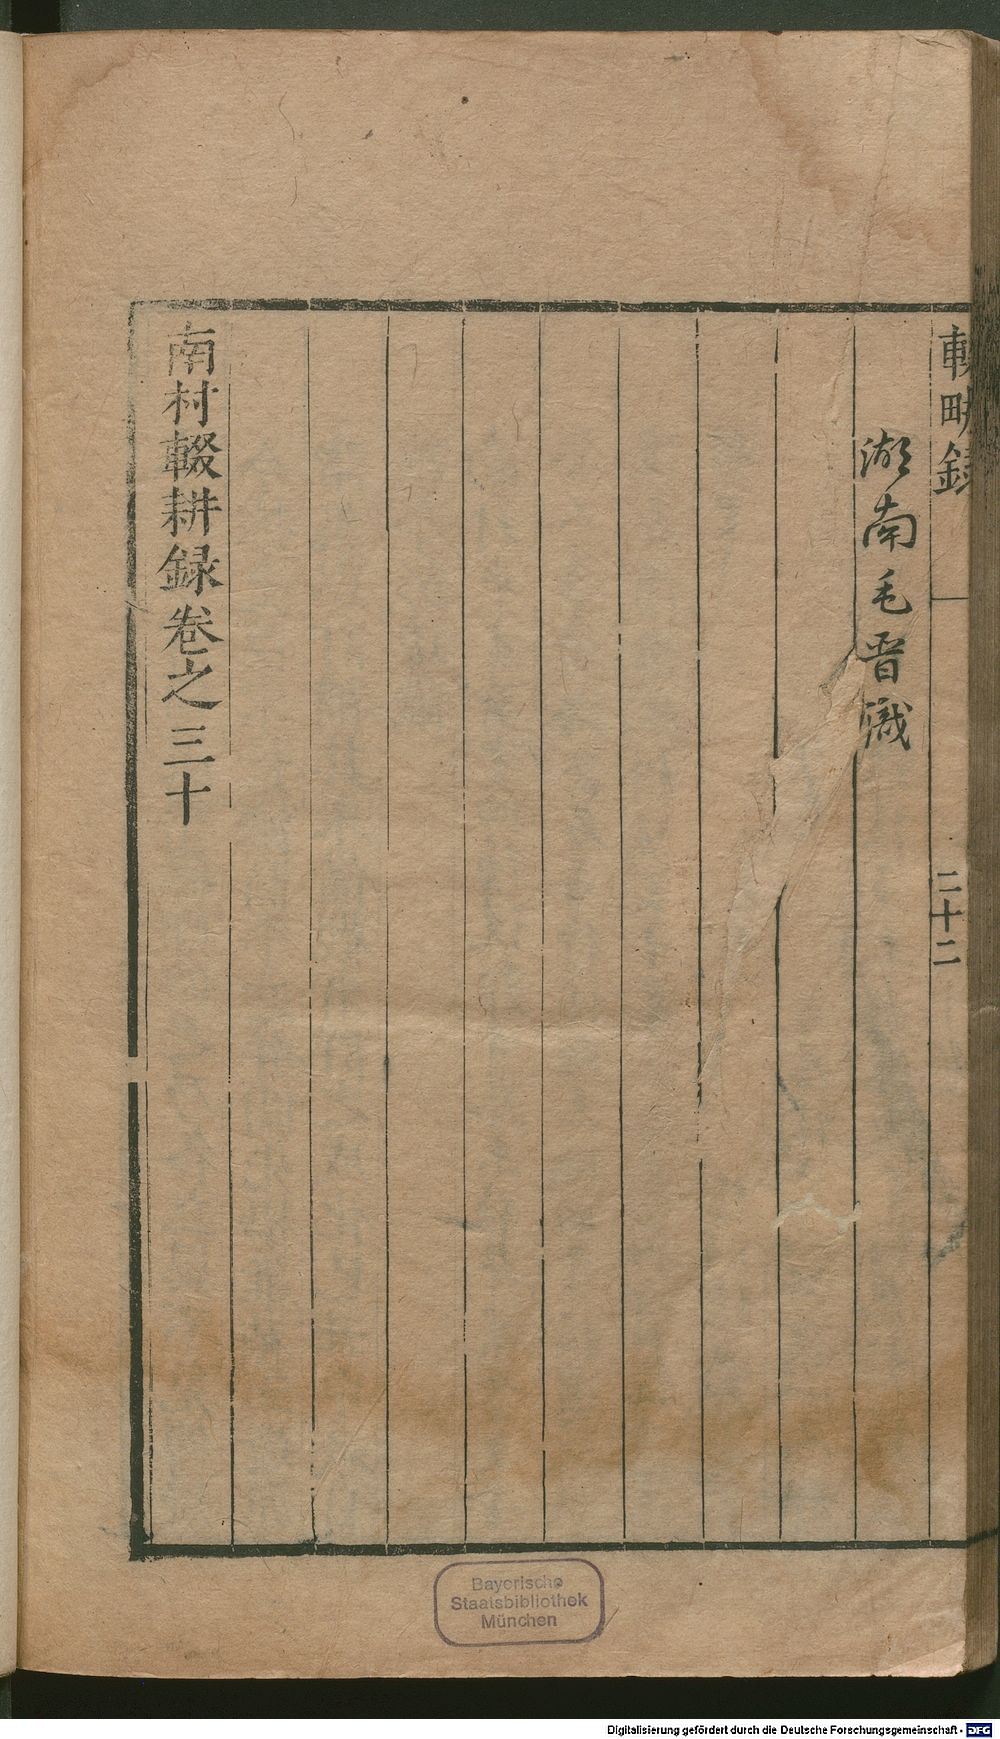 輟畊錄
二十二
湖南毛晋識
南村輟耕録卷之三十
Bayerische
Staatsbibliothek
München
Digitalisierung gefördert durch die Deutsche Forschungsgemeinschaft - DFG